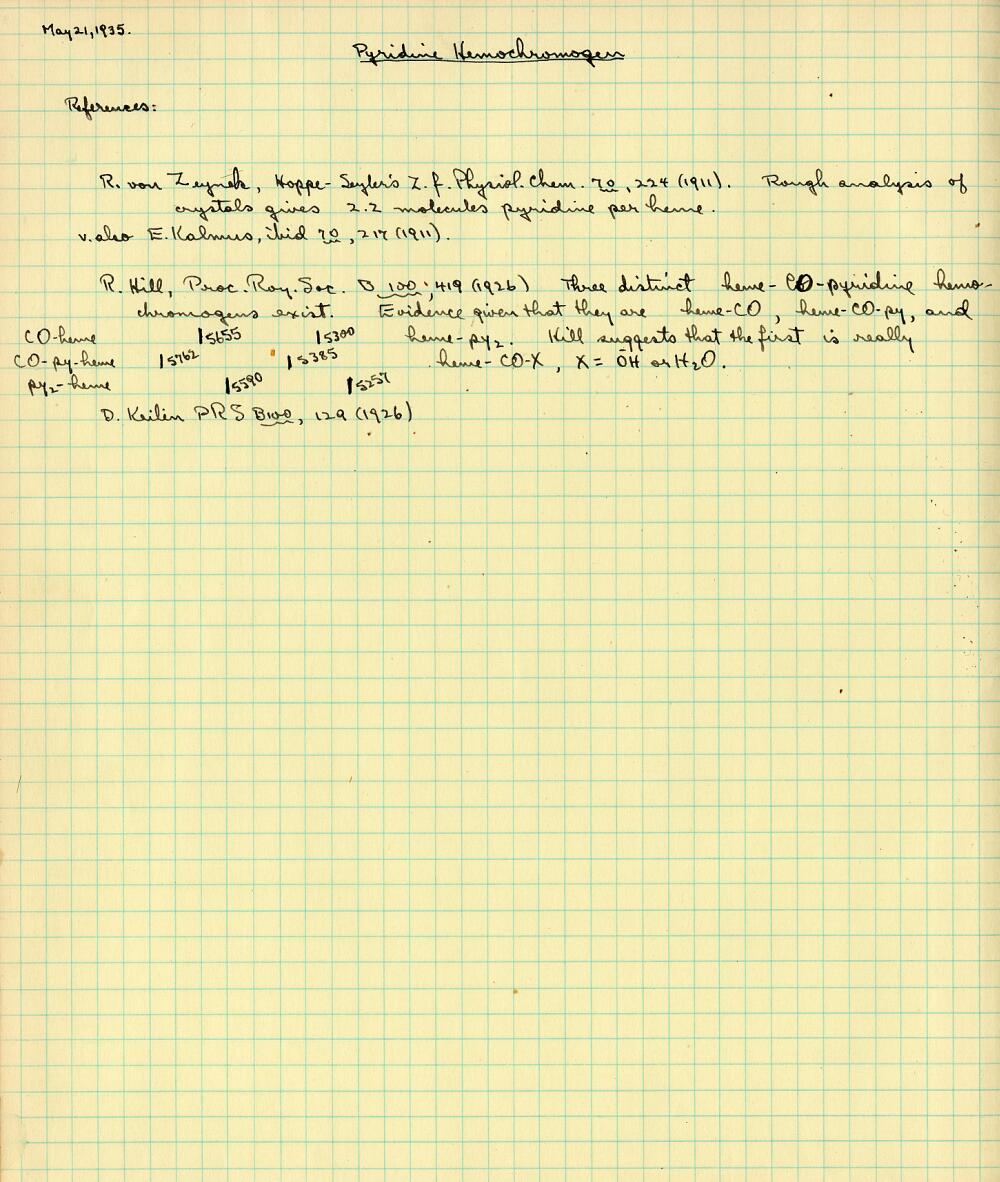 May 21, 1935.
Pyridine Hemochromogen
References:
R. von Zeynek, Hoppe-Seyler's Z. f. Physiol. Chem. 70, 224 (1911). Rough analysis of
crystals gives 2.2 molecules pyridine per heme.
v. also E. Kalmus, ibid 70, 217 (1911).
R. Hill, Proc. Roy. Soc. B 100, 419 (1926) Three distinct heme-CO-pyridine hemo-
chromogens exist. Evidence given that they are heme-CO, heme-CO-py, and
CO-heme 5655 5300 heme-py₂. Hill suggests that the first is really
CO-py-heme 5762 5385 heme-CO-X, X = OH or H₂O.
py₂-heme 5590 5257
D. Keilin PRS B100, 129 (1926)